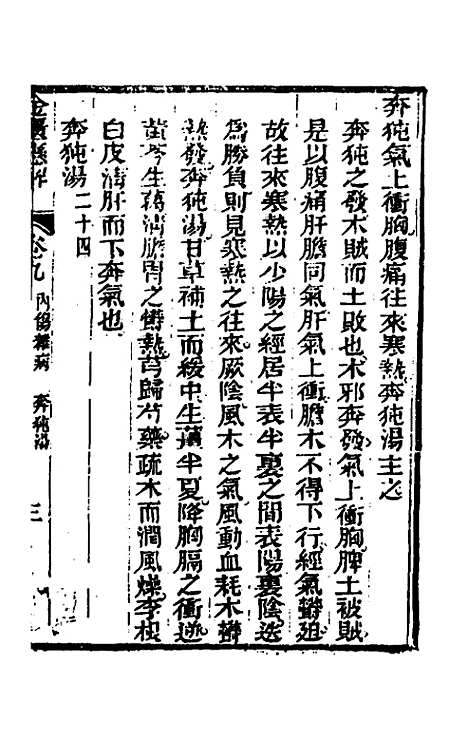 奔㹠氣上衝胸腹痛往來寒熱奔㹠湯主之
奔㹠之發木賊而土敗也木邪奔發氣上衝胸脾土被賊
是以腹痛肝膽同氣肝氣上衝膽木不得下行經氣鬱迫
故往來寒熱以少陽之經居半表半裏之間表陽裏陰迭
為勝負則見寒熱之往來厥陰風木之氣風動血耗木鬱
熱發奔㹠湯甘草補土而緩中生薑半夏降胸膈之衝逆
黃芩生葛清膽胃之鬱熱芎歸芍藥疏木而潤風燥李根
白皮清肝而下奔氣也
奔㹠湯二十四
金匱懸解
卷九 內傷雜病 奔㹠湯 三